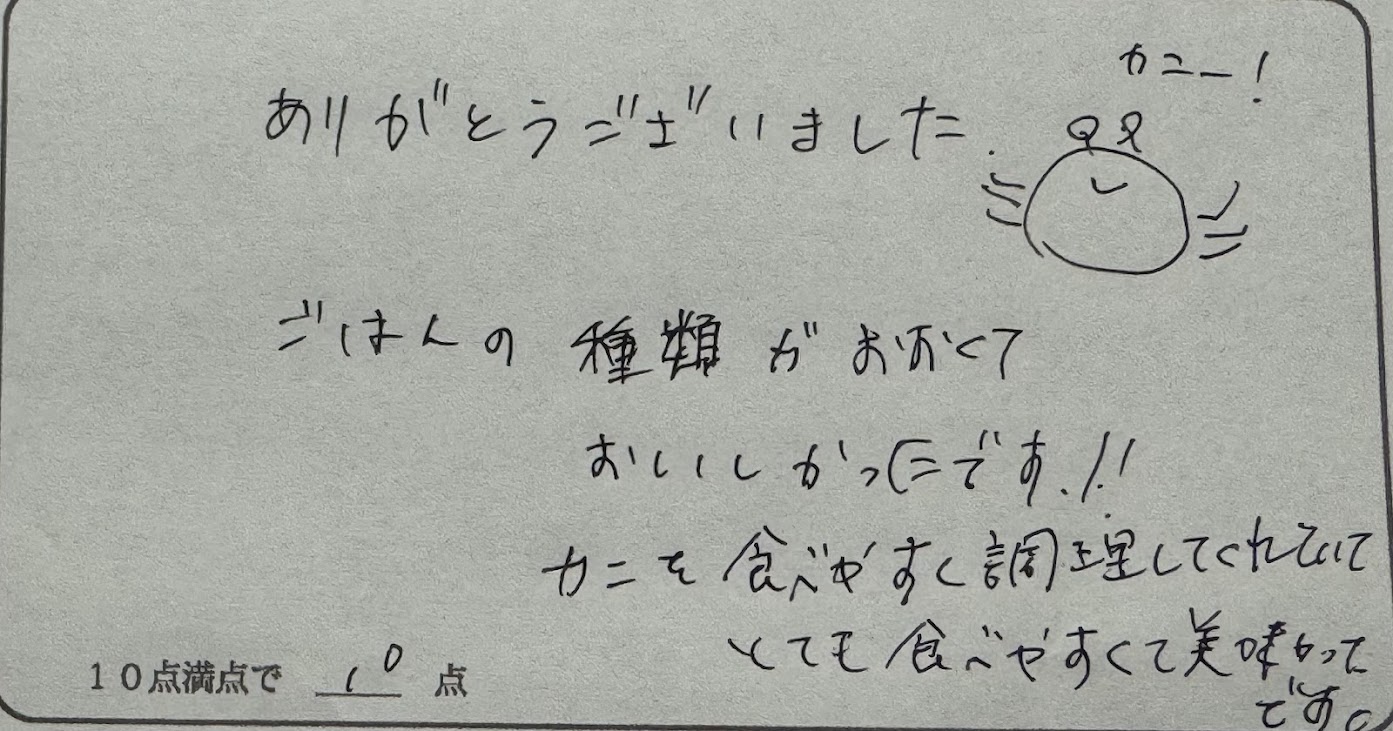 カニー!
ありがとうございました.
ごはんの種類がおおくて
おいしかったです!!
カニを食べやすく調理してくれていて
とても食べやすくて美味かって
です。
10点満点で 10 点